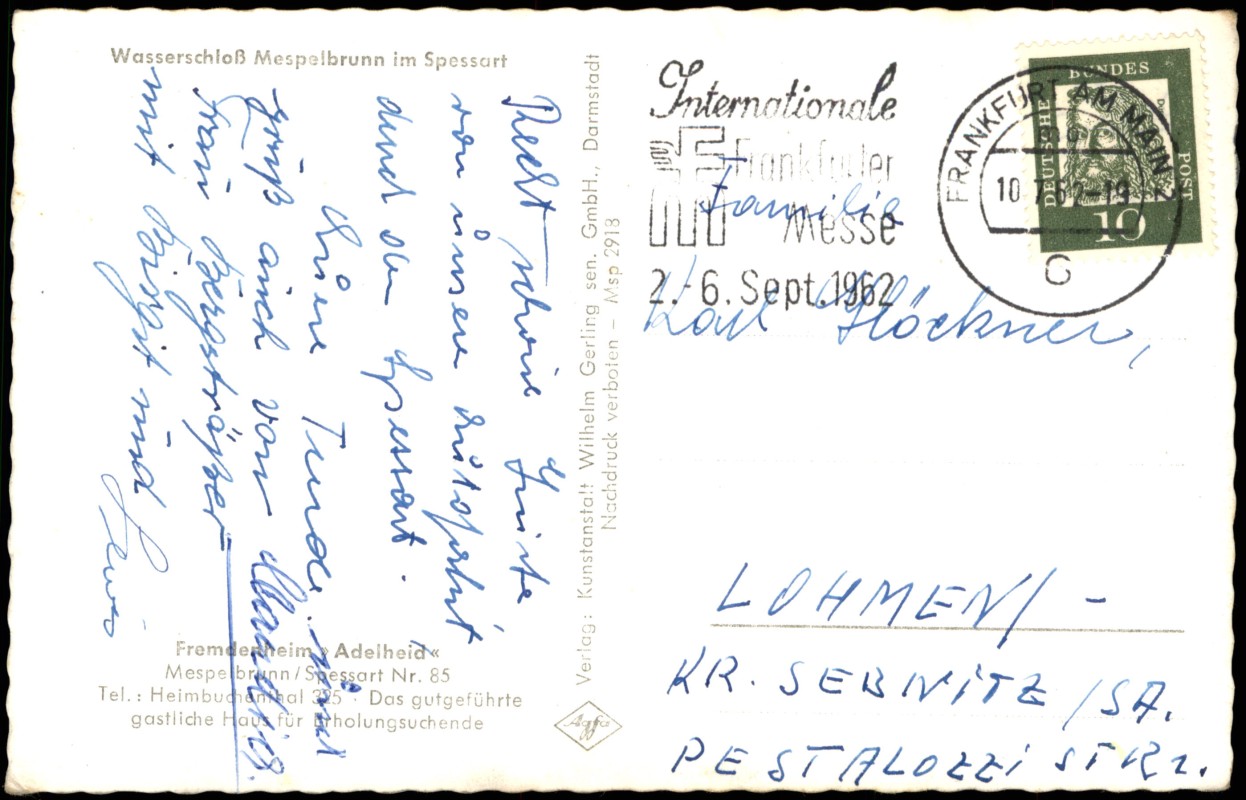 Wasserschloß Mespelbrunn im Spessart
Recht schöne Grüße
von unserer Autofahrt
durch den Spessart.
Eure Trude. und
Gruß auch von
Frau Bergsträßer
mit Birgit und
Fremdenheim »Adelheid«
Mespelbrunn/Spessart Nr. 85
Tel.: Heimbuchenthal 325 · Das gutgeführte
gastliche Haus für Erholungsuchende
Verlag: Kunstanstalt Wilhelm Gerling sen. GmbH., Darmstadt
Nachdruck verboten – Msp 2918
Agfa
Internationale
Frankfurter
Messe
2.-6. Sept. 1962
FRANKFURT AM MAIN 2
10.7.62-19
G
DEUTSCHE BUNDESPOST
10
Familie
Karl Klöckner,
LOHMEN/-
KR. SEBNITZ/SA.
PESTALOZZISTR 2.